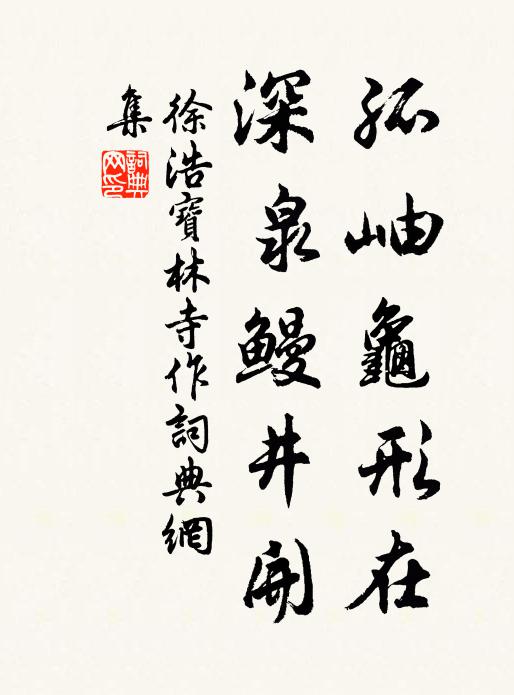 孤岫龜形在
深泉鰻井開
徐浩寶林寺作詞典網
集
詞典網印